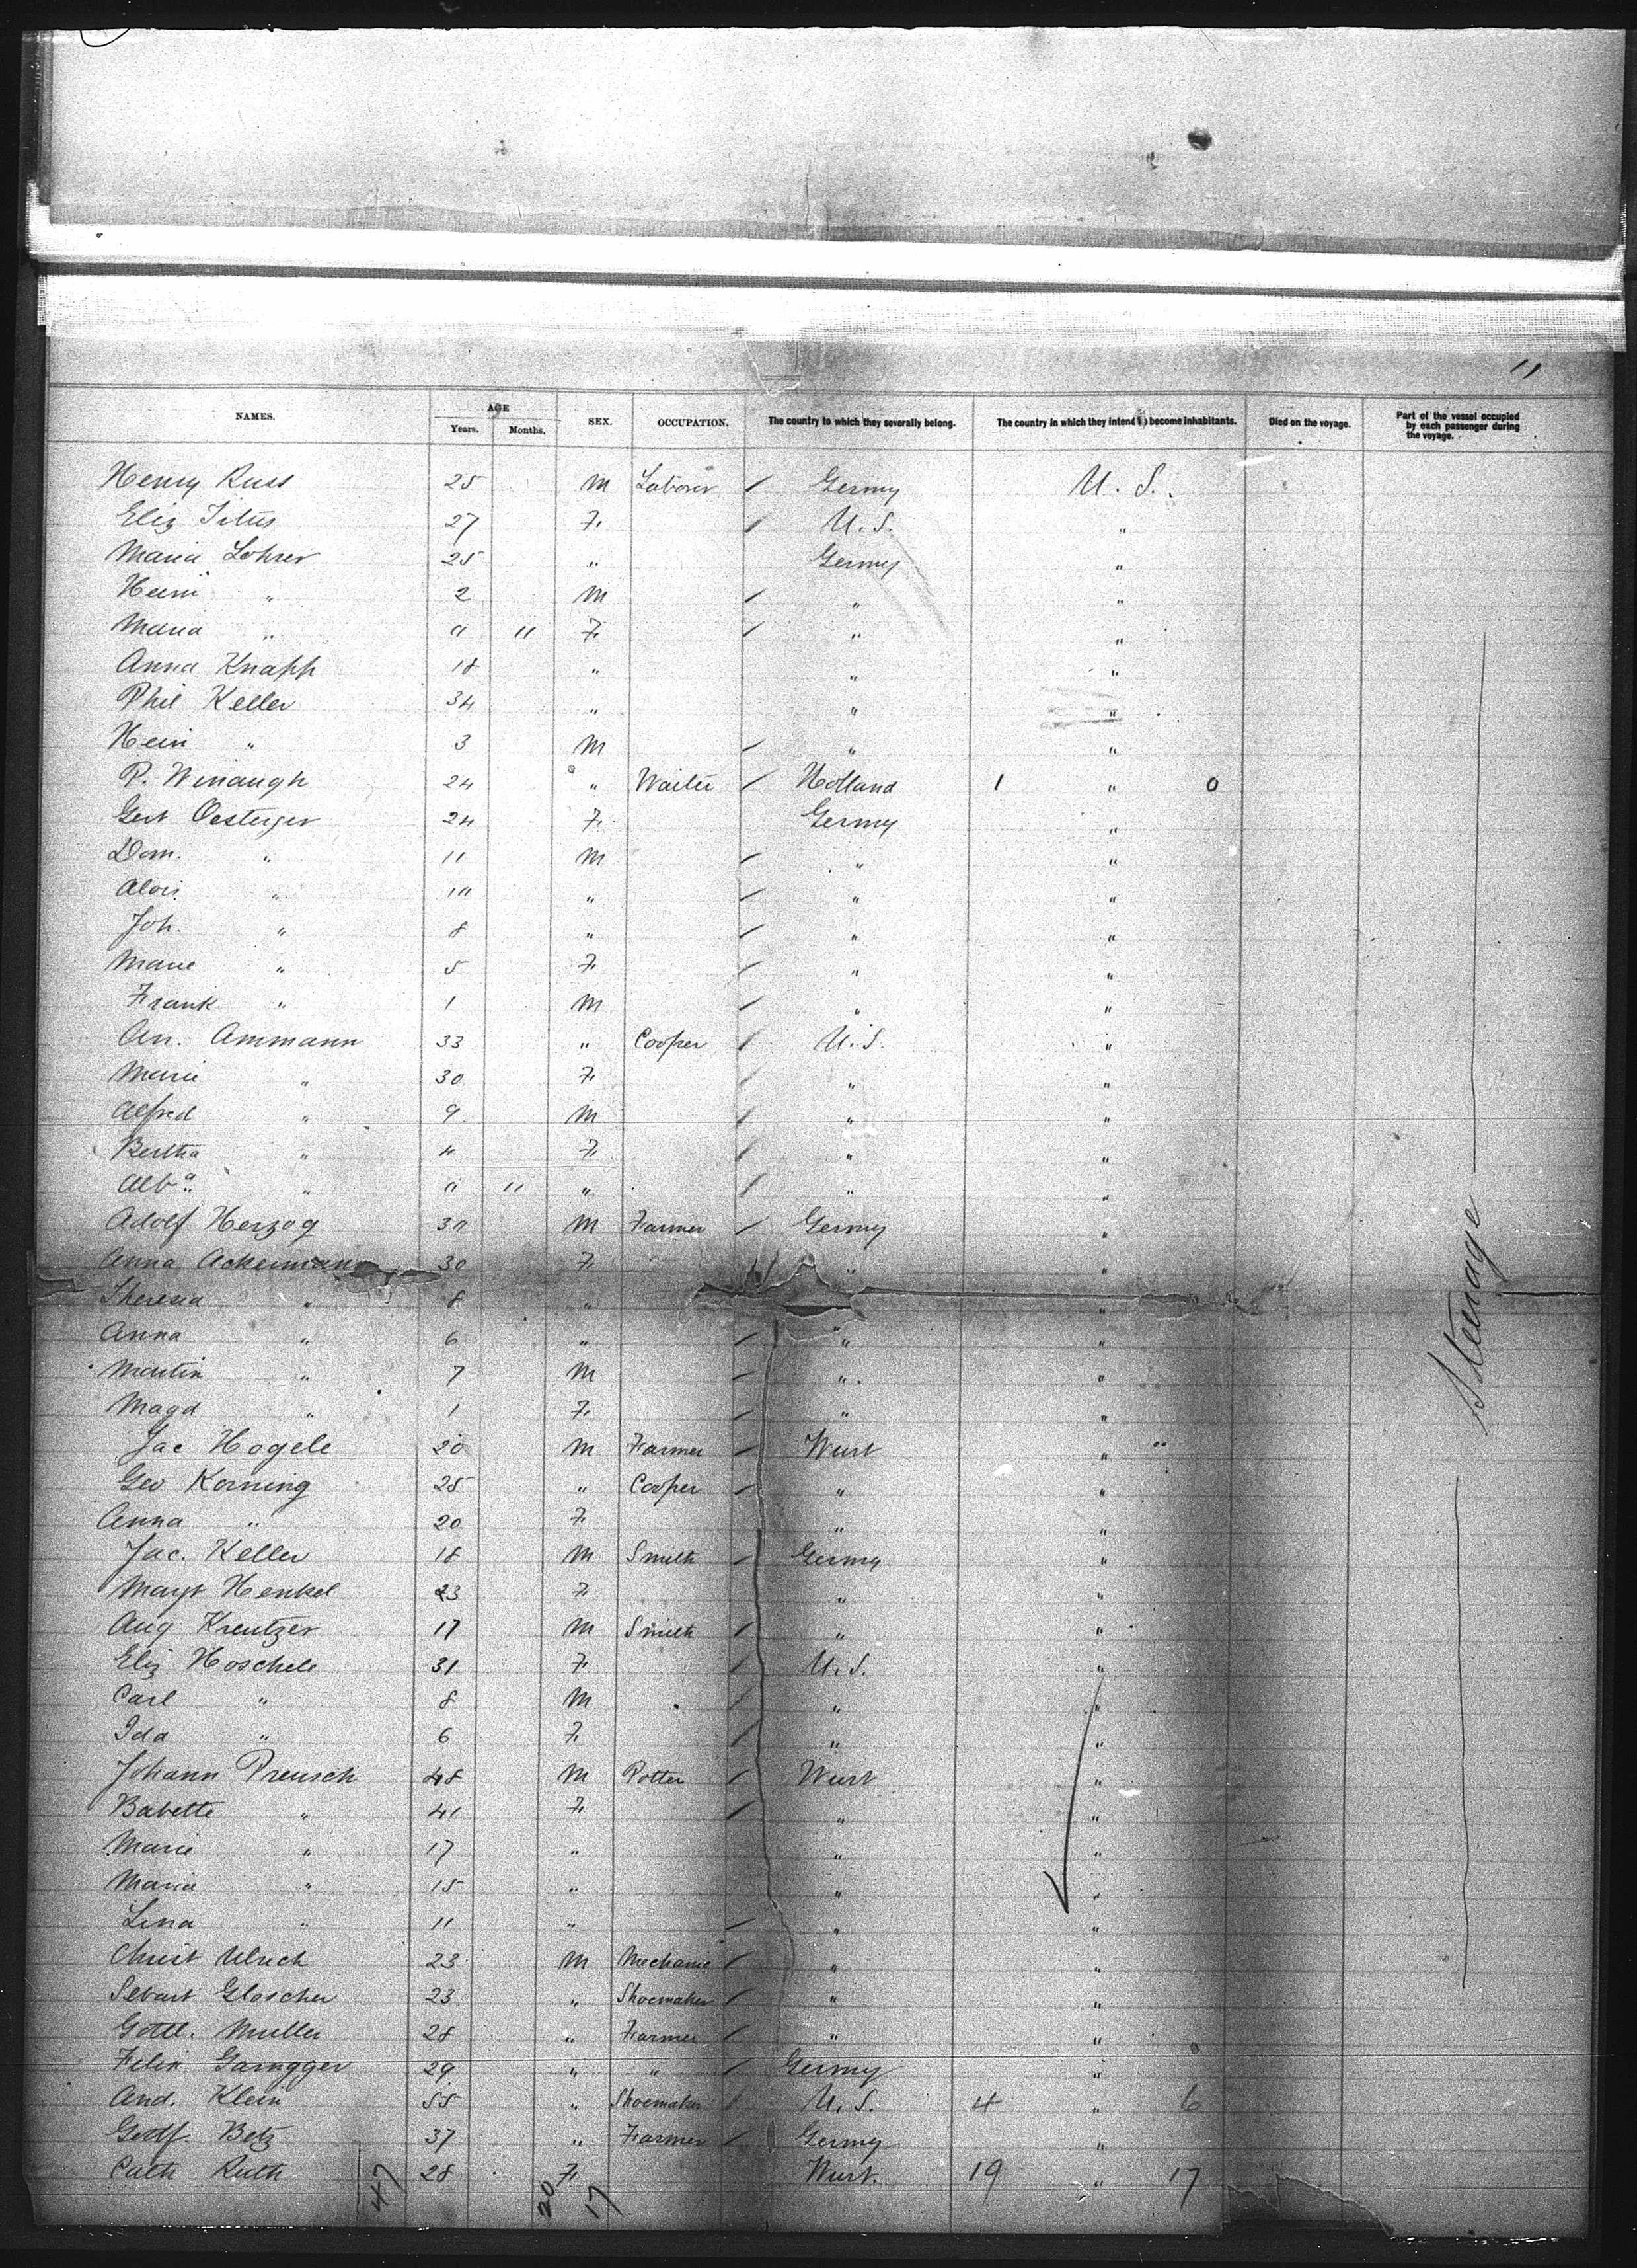 11
NAMES. AGE Years. Months. SEX. OCCUPATION. The country to which they severally belong. The country in which they intend to become inhabitants. Died on the voyage. Part of the vessel occupied by each passenger during the voyage.
Henry Russ 25 M Laborer / Germy U. S.
Eliz Titus 27 F. / U. S. "
Maria Lohrer 25 " Germy "
Heini " 2 M / " "
Maria " 0 11 F / " "
Anna Knapp 18 " " "
Phil Keller 34 " " "
Hein " 3 M / " "
P. Winaugh 24 " Waiter / Holland 1 " 0
Gert Oesterjer 24 F. Germy "
Dom. " 11 M / " "
Alois " 10 " / " "
Joh. " 8 " / " "
Marie " 5 F / " "
Frank " 1 M / " "
An. Ammann 33 " Cooper / U. S. "
Marie " 30 F / " "
Alfred " 9 M / " "
Bertha " 4 F / " "
Alba " 0 11 " / " "
Adolf Herzog 30 M Farmer / Germy "
Anna Ackermann 30 F. " "
Theresia " 8 " "
Anna " 6 " / " "
Martin " 7 M / " "
Magd " 1 F / " "
Jac Hogele 20 M Farmer / Wurt "
Geo Korning 25 " Cooper / " "
Anna " 20 F " "
Jac. Keller 18 M Smith / Germy "
Margt Henkel 23 F " "
Aug Kreutzer 17 M Smith / " "
Eliz Hoschele 31 F / U. S. "
Carl " 8 M / " "
Ida " 6 F / " "
Johann Preusch 48 M Potter / Wurt "
Babette " 41 F / " "
Marie " 17 " " "
Maria " 15 " " "
Lina " 11 " / " "
Christ Ulrich 23 M Mechanic / " "
Sebast Gloscher 23 " Shoemaker / " "
Gottl. Muller 28 " Farmer / " "
Felix Garngger 29 " " / Germy "
And. Klein 55 " Shoemaker / U. S. 4 " 6
Gottf. Betz 37 " Farmer / Germy "
Cath Ruth 28 F Wurt. 19 " 17
47 20 17
Steerage